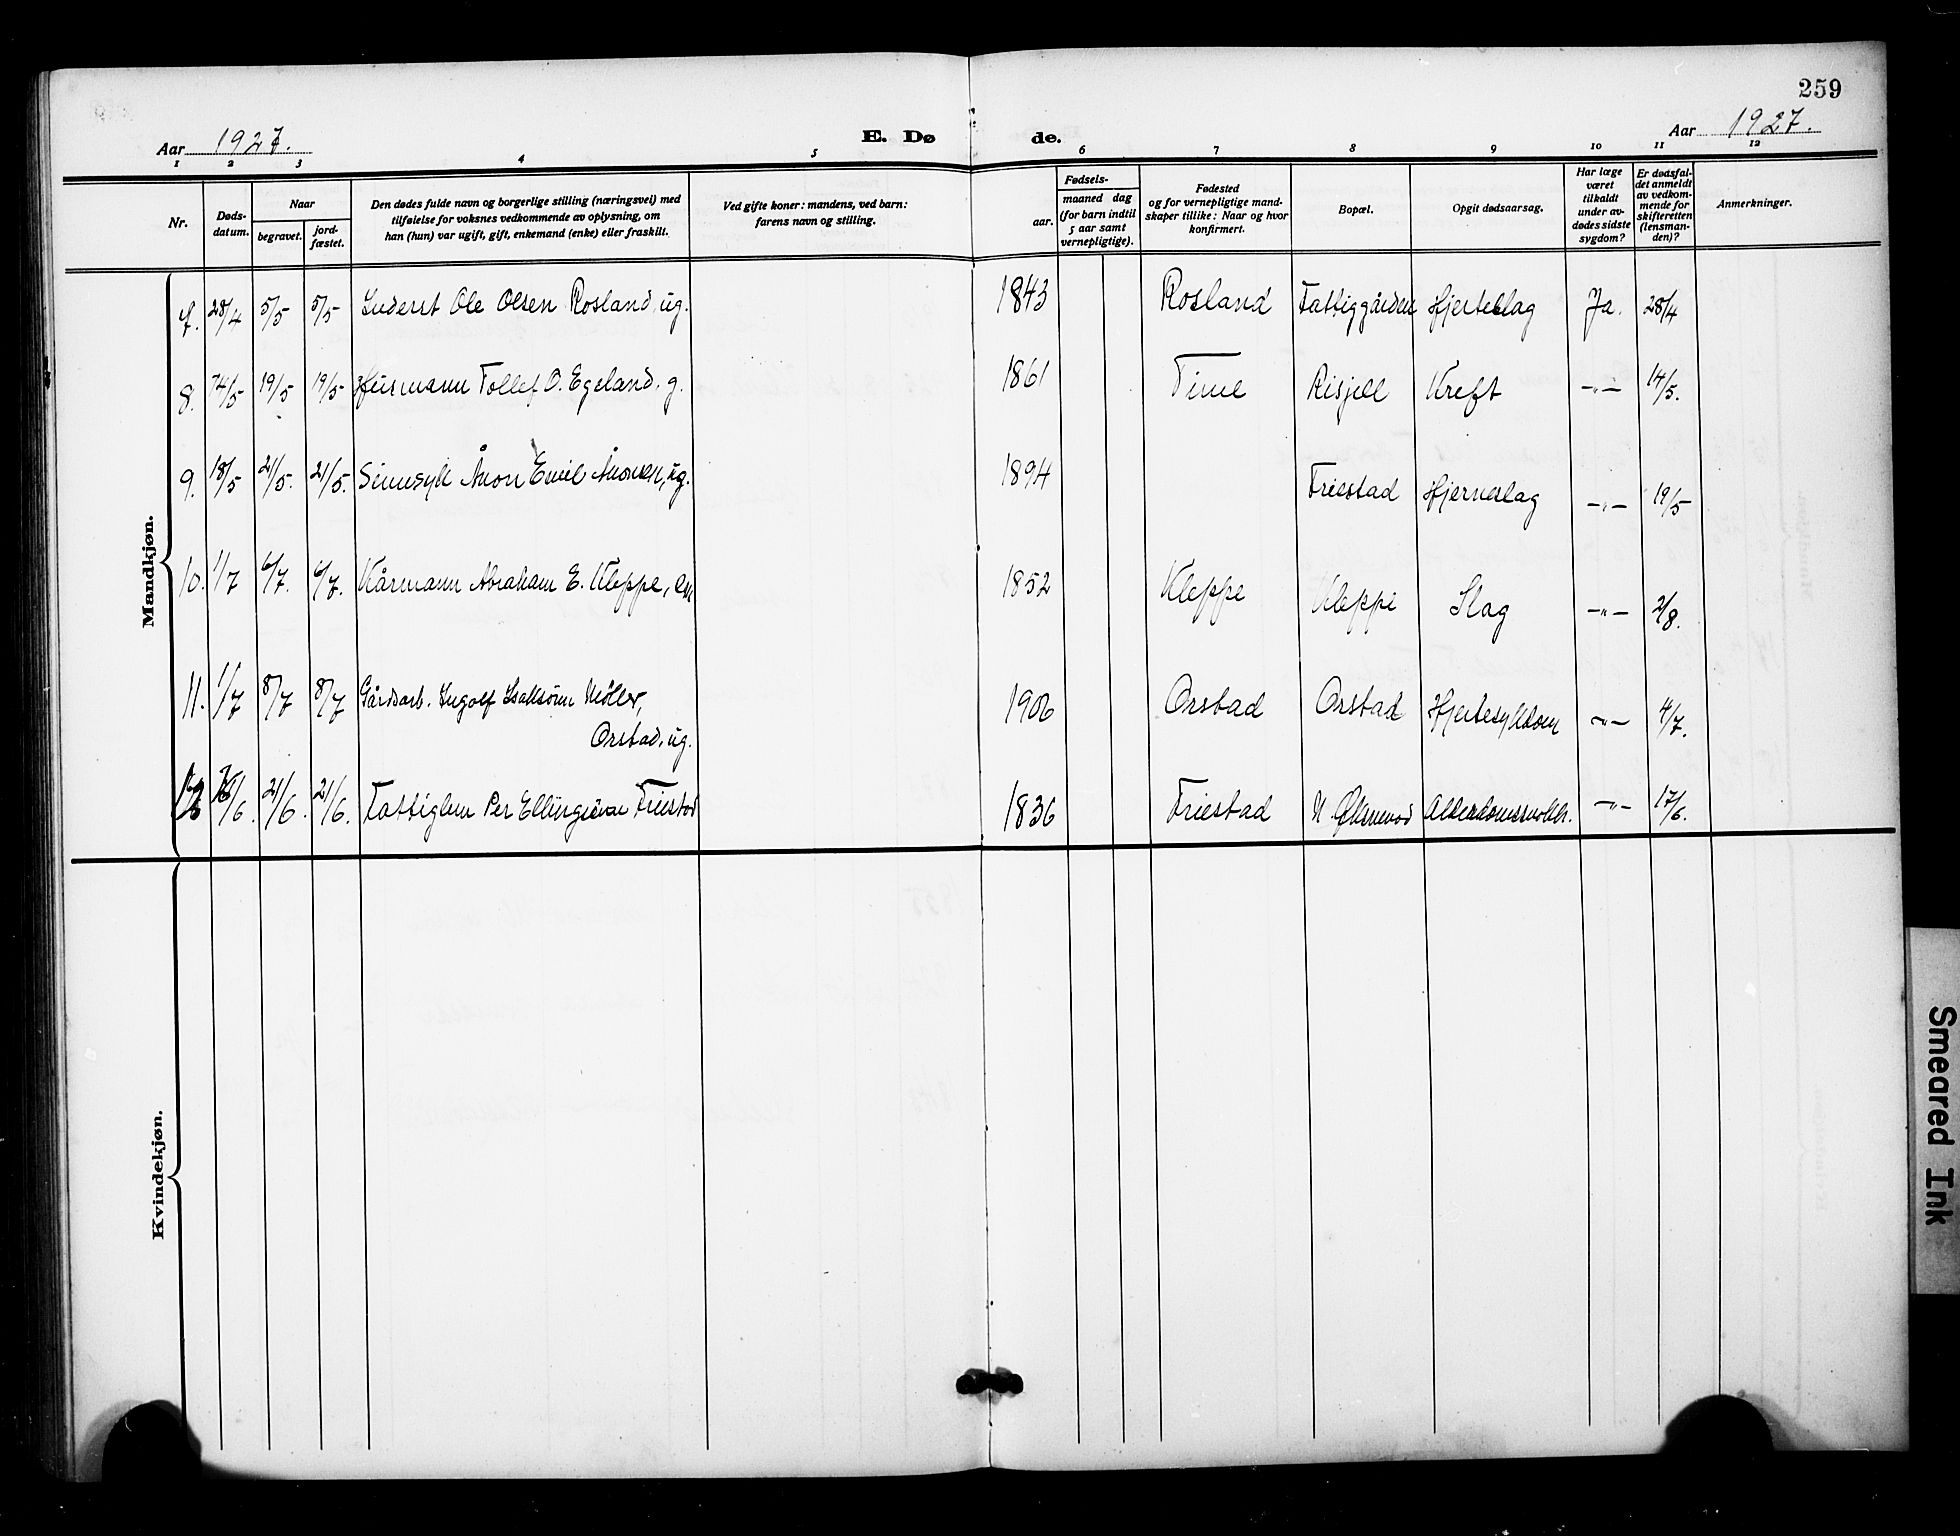 259
Aar 1927.
E. Døde.
Aar 1927.
1 2 3 4 5 6 7 8 9 10 11 12
Nr.
Døds-datum.
Naar
begravet.
jord-fæstet.
Den dødes fulde navn og borgerlige stilling (næringsvei) med
tilføielse for voksnes vedkommende av oplysning, om
han (hun) var ugift, gift, enkemand (enke) eller fraskilt.
Ved gifte koner: mandens, ved barn:
farens navn og stilling.
Fødsels-
aar.
maaned dag
(for barn indtil
5 aar samt
vernepligtige).
Fødested
og for vernepligtige mand-
skaper tillike: Naar og hvor
konfirmert.
Bopæl.
Opgit dødsaarsag.
Har læge
været
tilkaldt
under av-
dødes sidste
sygdom?
Er dødsfal-
det anmeldt
av vedkom-
mende for
skifteretten
(lensman-
den)?
Anmerkninger.
Mandkjøn.
7. 28/4 5/5 5/5 Inderst Ole Olsen Rosland, ug. 1843 Rosland Fattiggården Hjerteslag Ja. 28/4
8. 14/5 19/5 19/5 Husmann Tollef O. Egeland, g. 1861 Time Risjell Kreft -"- 14/5.
9. 18/5 21/5. 21/5. Sinnsyk Ånon Emil Ånonsen, ug. 1894 Friestad Hjerneslag -"- 19/5
10. 1/7 6/7. 6/7. Kårmann Abraham E. Kleppe, em 1852 Kleppe Kleppe Slag -"- 2/8.
11. 1/7 8/7 8/7 Gårdsarb. Ingolf Isaksønn Møller,
Orstad, ug. 1906 Orstad Orstad Hjertesykdom -"- 4/7.
12 /6. 21/6. 21/6. Fattiglem Per Ellingsøen Friestad 1836 Friestad N. Øksnevad Alderdomssvakh. -"- 17/6.
Kvindekjøn.
Smeared Ink